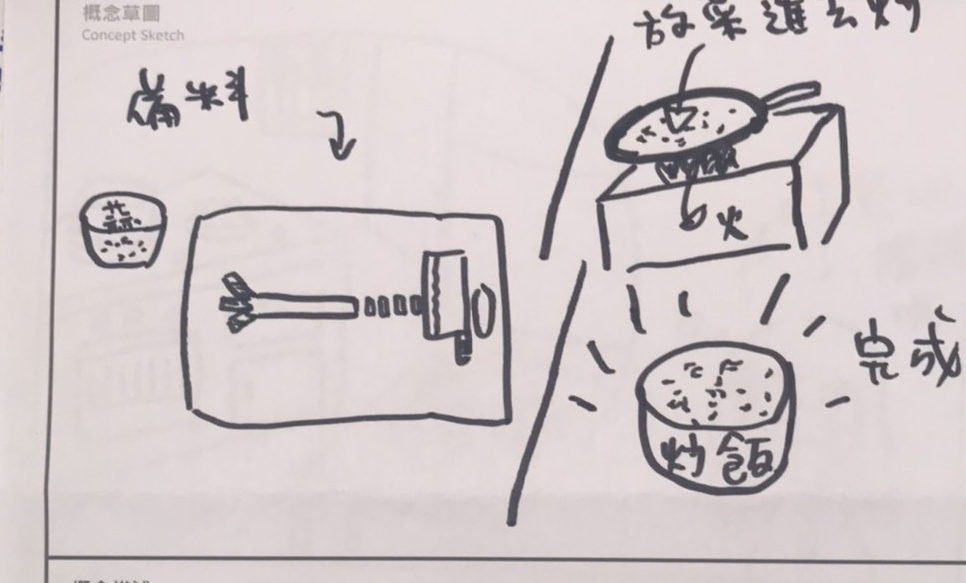 概念草圖
Concept Sketch
備料
蒜
放菜進去炒
火
完成
炒飯